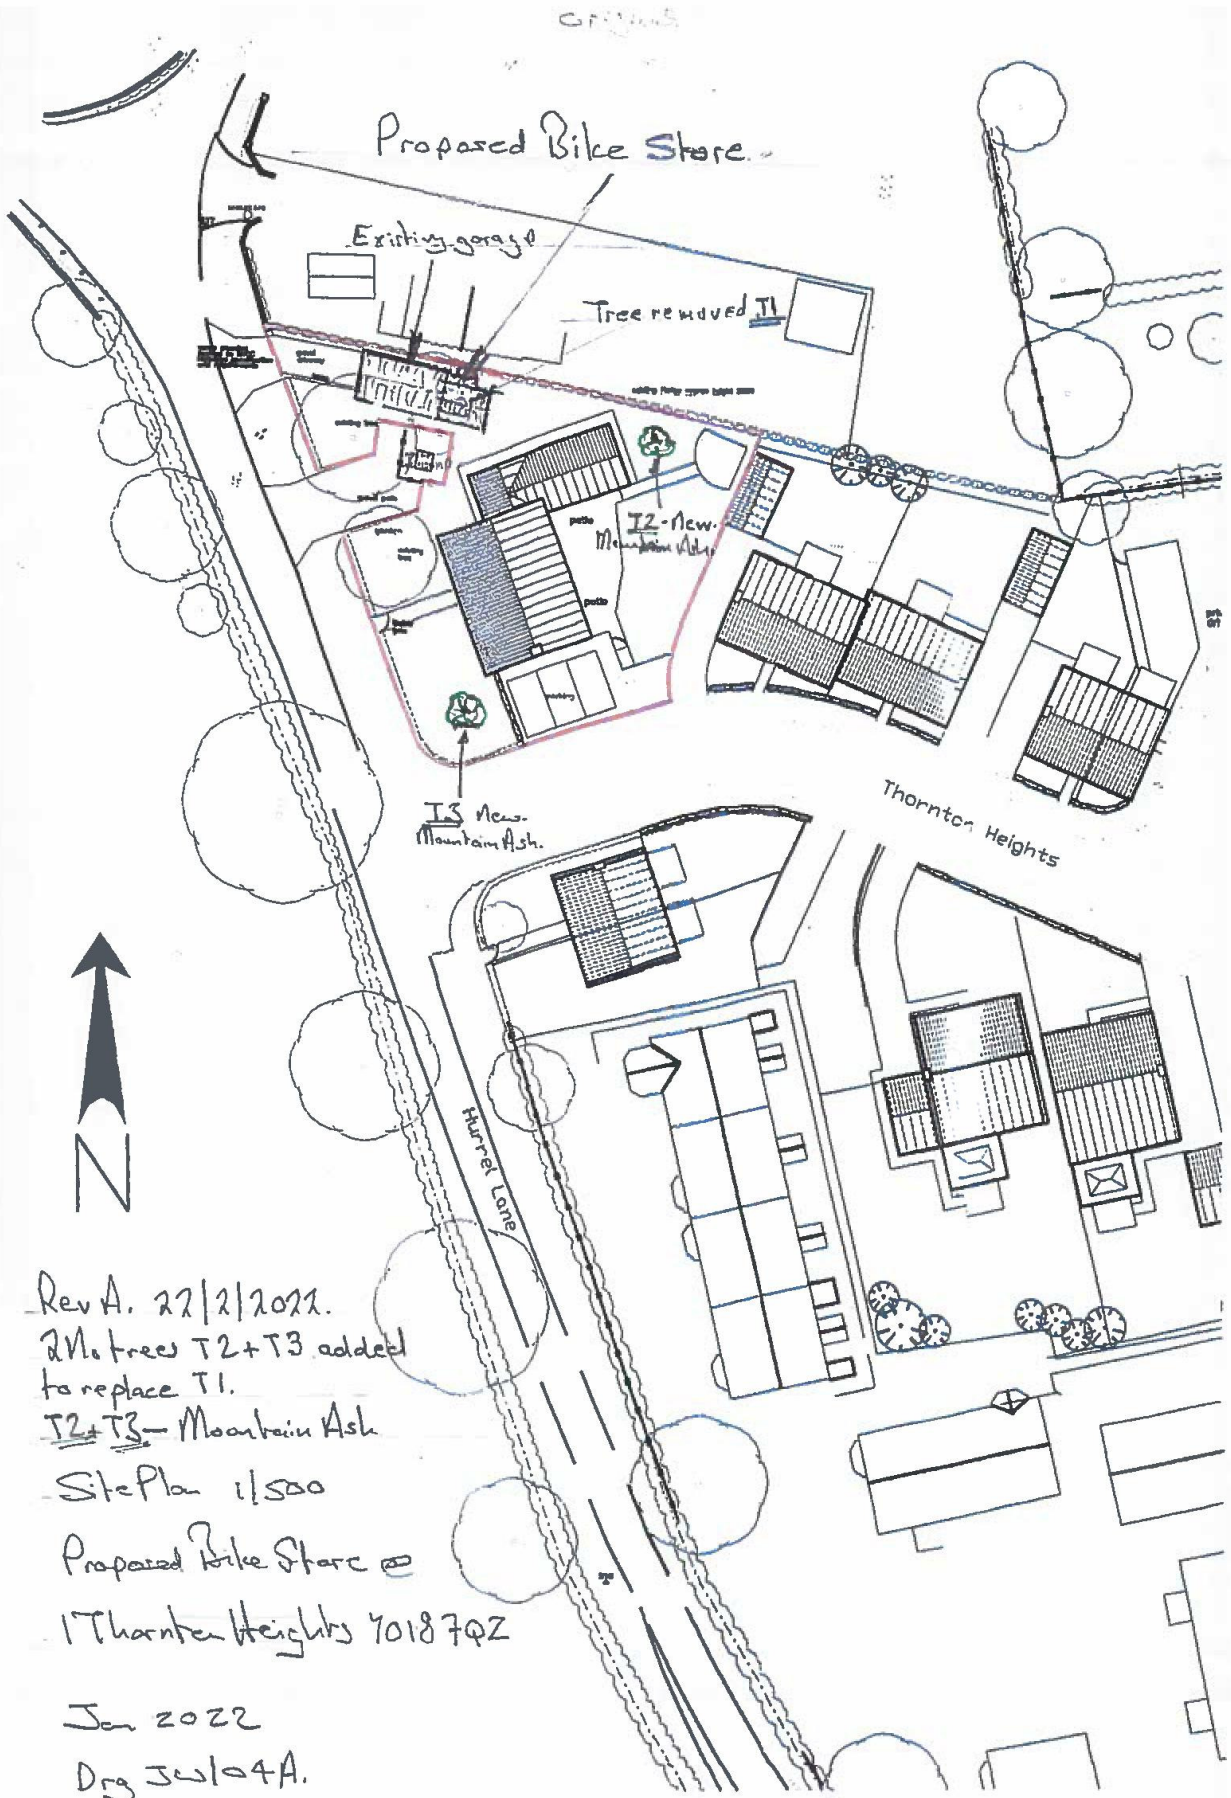 Original
Proposed Bike Store
Existing garage
Tree removed T1
T2 - New
Mountain Ash.
patio
patio
parking
garden
T3 New
Mountain Ash.
Thornton Heights
N
Hurrel Lane
Rev A. 22/2/2022.
2No trees T2 + T3 added
to replace T1.
T2 + T3 — Mountain Ash
Site Plan 1/500
Proposed Bike Store @
1 Thornton Heights YO18 7QZ
Jan 2022
Drg JW/04A.